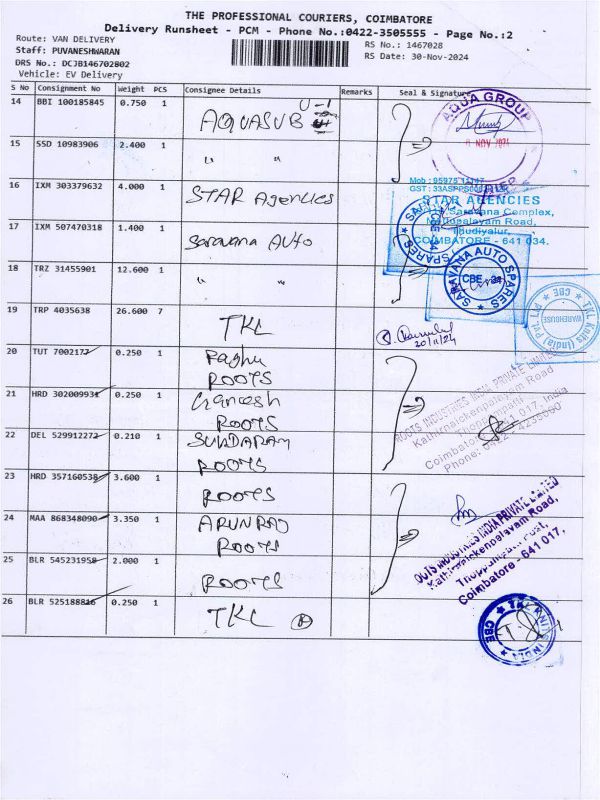 THE PROFESSIONAL COURIERS, COIMBATORE
Delivery Runsheet - PCM - Phone No.:0422-3505555 - Page No.:2
Route: VAN DELIVERY
RS No.: 1467028
Staff: PUVANESHWARAN
RS Date: 30-Nov-2024
DRS No.: DCJB146702802
Vehicle: EV Delivery
S No Consignment No Weight PCS Consignee Details Remarks Seal & Signature
14 BBI 100185845 0.750 1 AQUASUB U-1
AQUA GROUP
NOV
15 SSD 10983906 2.400 1 " "
16 IXM 303379632 4.000 1 STAR Agencies
STAR AGENCIES
Saravana Complex,
COIMBATORE - 641 034.
17 IXM 507470318 1.400 1 Saravana Auto
18 TRZ 31455901 12.600 1 " "
SARAVANA AUTO SPARES
CBE - 34
19 TRP 4035638 26.600 7 TKL
20/11/24
TKL Knits (India) Pvt Ltd
WAREHOUSE
CBE
20 TUT 7002177 0.250 1 Raghu
ROOTS
21 HRD 302009931 0.250 1 Ganesh
ROOTS
ROOTS INDUSTRIES INDIA PRIVATE LIMITED
Kathirnaickenpalayam Road
Coimbatore
22 DEL 529912272 0.210 1 SUNDARAM
ROOTS
23 HRD 357160538 3.600 1 ROOTS
24 MAA 868348090 3.350 1 ARUNRAJ
ROOTS
OOTS INDUSTRIES INDIA PRIVATE LIMITED
Kathirnaickenpalayam Road,
Thoppampatti Post,
Coimbatore - 641 017.
25 BLR 545231958 2.000 1 ROOTS
26 BLR 525188816 0.250 1 TKL
TKL KNITS INDIA
CBE